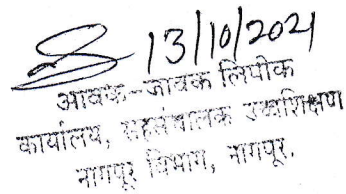 13/10/2021
आवक-जावक लिपीक
कार्यालय, सहसंचालक उच्चशिक्षण
नागपूर विभाग, नागपूर.